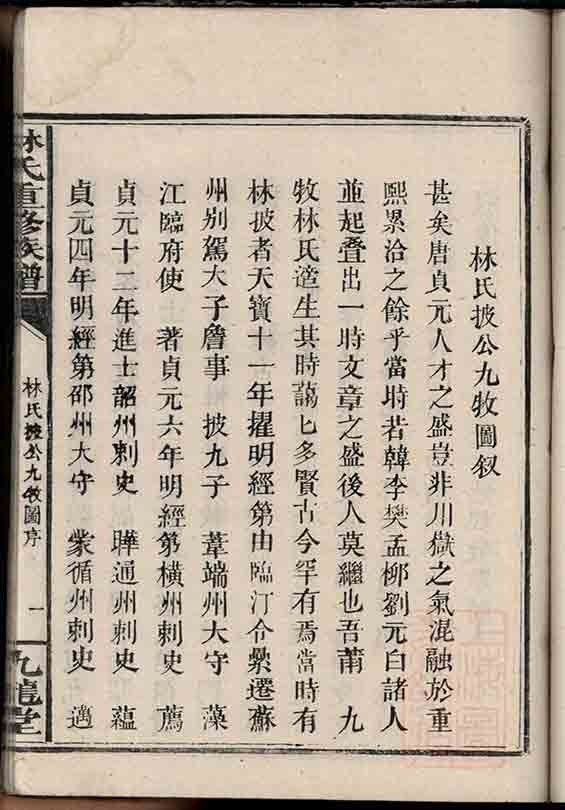 林氏披公九牧圖叙
甚矣唐貞元人才之盛豈非川嶽之氣混融於重
熙累洽之餘乎當時若韓李樊孟柳劉元白諸人
並起叠出一時文章之盛後人莫繼也吾莆 九
牧林氏適生其時藹匕多賢古今罕有焉當時有
林披者天寶十一年擢明經第由臨汀令纍遷蘇
州别駕大子詹事 披九子 葦端州大守 藻
江臨府使 著貞元六年明經第橫州刺史 薦
貞元十二年進士韶州刺史 曄通州刺史 蘊
貞元四年明經第邵州大守 蒙循州刺史 邁
林氏重修族譜
林氏披公九牧圖序
一
九龍堂